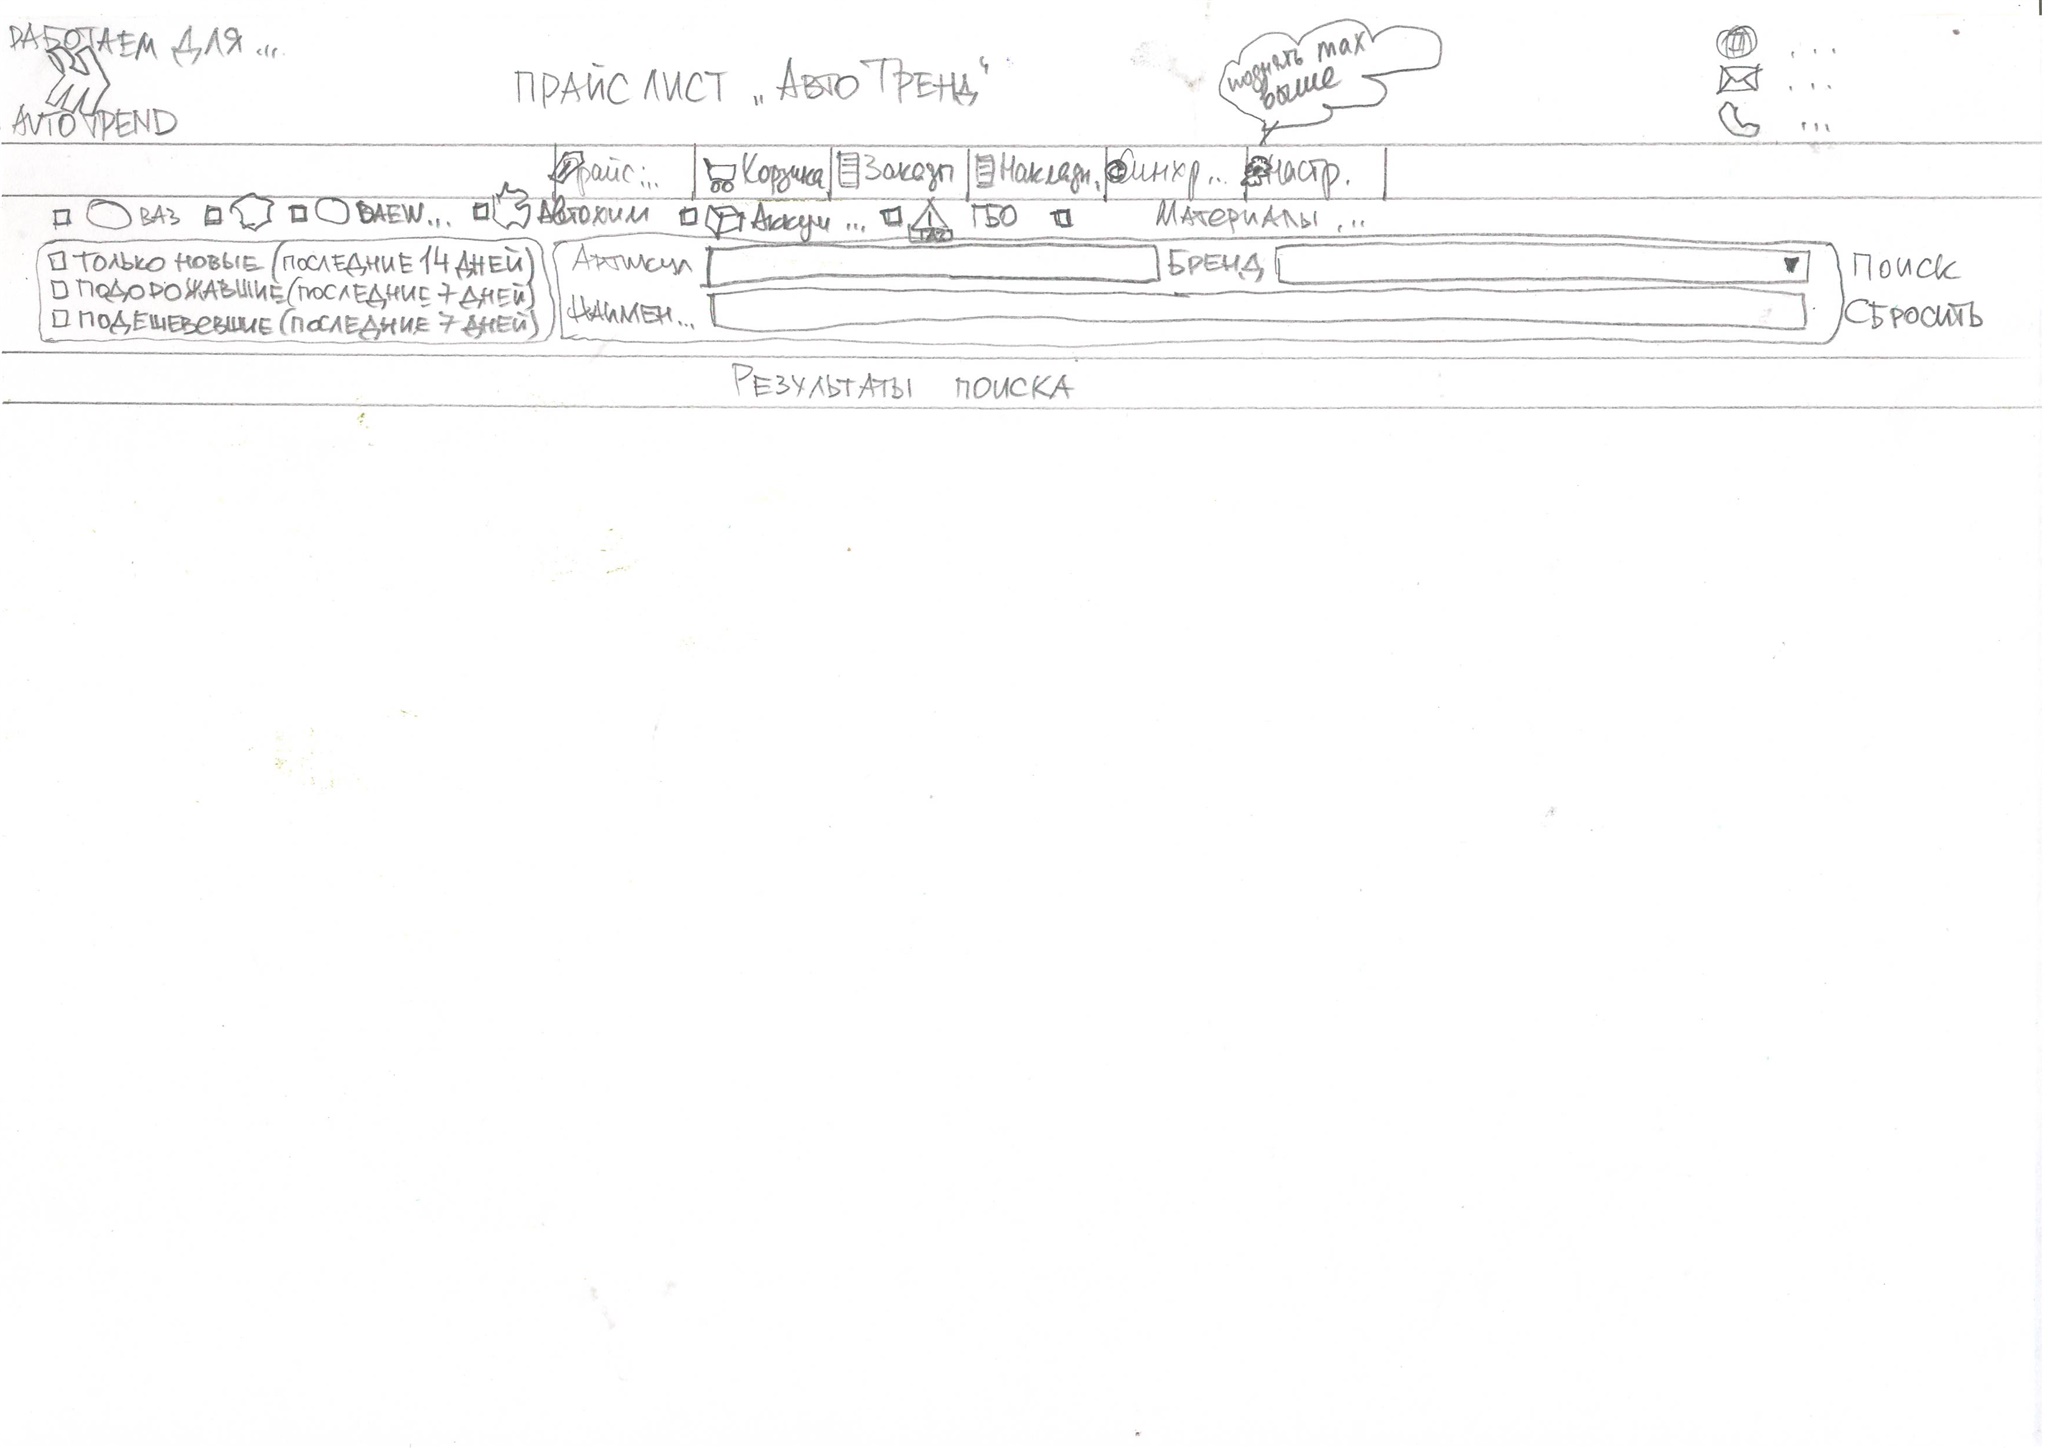 РАБОТАЕМ ДЛЯ ...
AVTO TPEND
ПРАЙС ЛИСТ „АВТО ТРЕНД"
поднять max
выше
...
...
...
Прайс... Корзина Заказы Накладн. Синхр... Настр.
ВАЗ DAEW... Автохим Аккум ... ГБО Материалы ...
ТОЛЬКО НОВЫЕ (ПОСЛЕДНИЕ 14 ДНЕЙ)
ПОДОРОЖАВШИЕ (ПОСЛЕДНИЕ 7 ДНЕЙ)
ПОДЕШЕВЕВШИЕ (ПОСЛЕДНИЕ 7 ДНЕЙ)
Артикул БРЕНД ПОИСК
НАИМЕН... СБРОСИТЬ
РЕЗУЛЬТАТЫ ПОИСКА